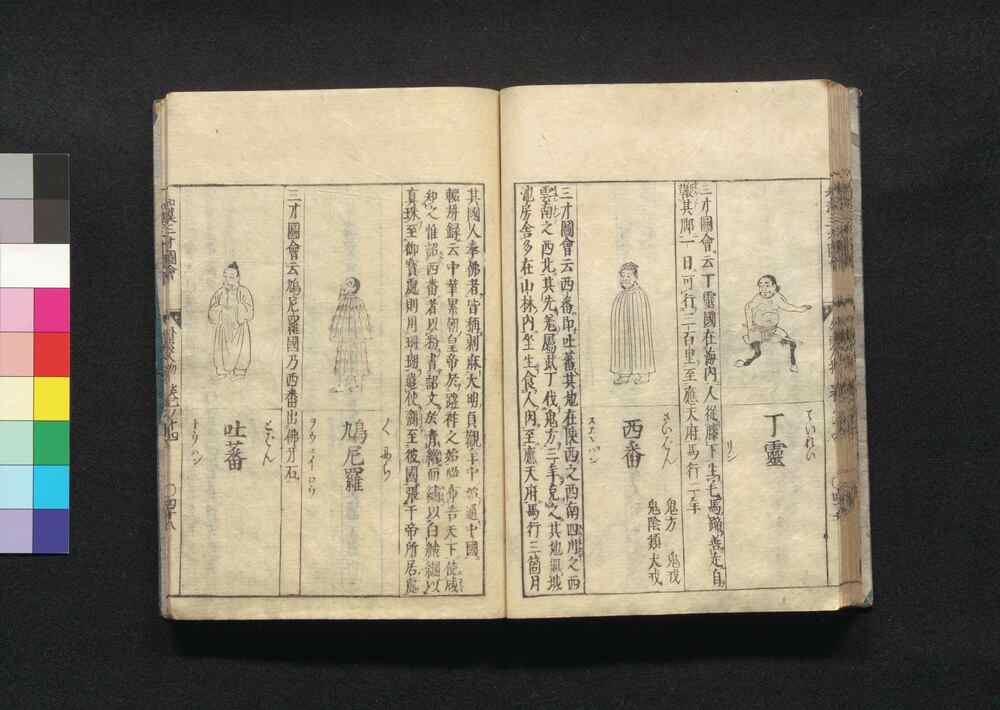 ていれい
丁靈
リン
三才圖會云丁靈國在海內人從膝下生毛馬蹄善走自
鞭其脚一日可行三百里至應天府馬行二年
さいばん
西番
スエヽハン
鬼方 鬼戎
鬼陰類犬戎
三才圖會云西番即吐蕃其地在陝西之西南四川之西
雲南之西北其先羌屬武丁伐鬼方三年克之其地氣
房舍多在山林內坐生食人肉至應天府馬行三箇月
其國人奉佛者皆稱剌麻大明貞觀年中始通中國
輟耕錄云中華累朝皇帝於踐祚之始必布告天下使咸
知之惟詔西番者以粉書詔文於青繒而繡以白絨網以
真珠至御寶處則用珊瑚遣使齎至彼國張于帝所居處
鳩尼羅
三才圖會云鳩尼羅國乃西番出佛牙石
とばん
吐蕃
トウハン
和漢三才圖會